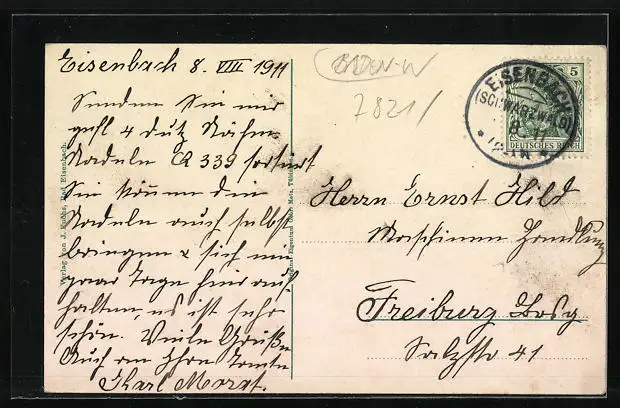 Eisenbach 8. VIII 1911
Senden Sie mir
gefl 4 dutz Nähm.
Nadeln R 339 sortiert
Sie können die
Nadeln auch selbst
bringen & sich ein
paar Tage hier auf
halten, es ist sehr
schön. Viele Grüße
Auch an Ihre Tante
Karl Morat.
Verlag von J. Fuchs, Bad Eisenbach.
BADEN-W
7821/
EISENBACH
(SCHWARZWALD)
8 11
5
DEUTSCHES REICH
Herrn Ernst Hild
Maschinen Handlung
Freiburg Brsg
Salzstr 41